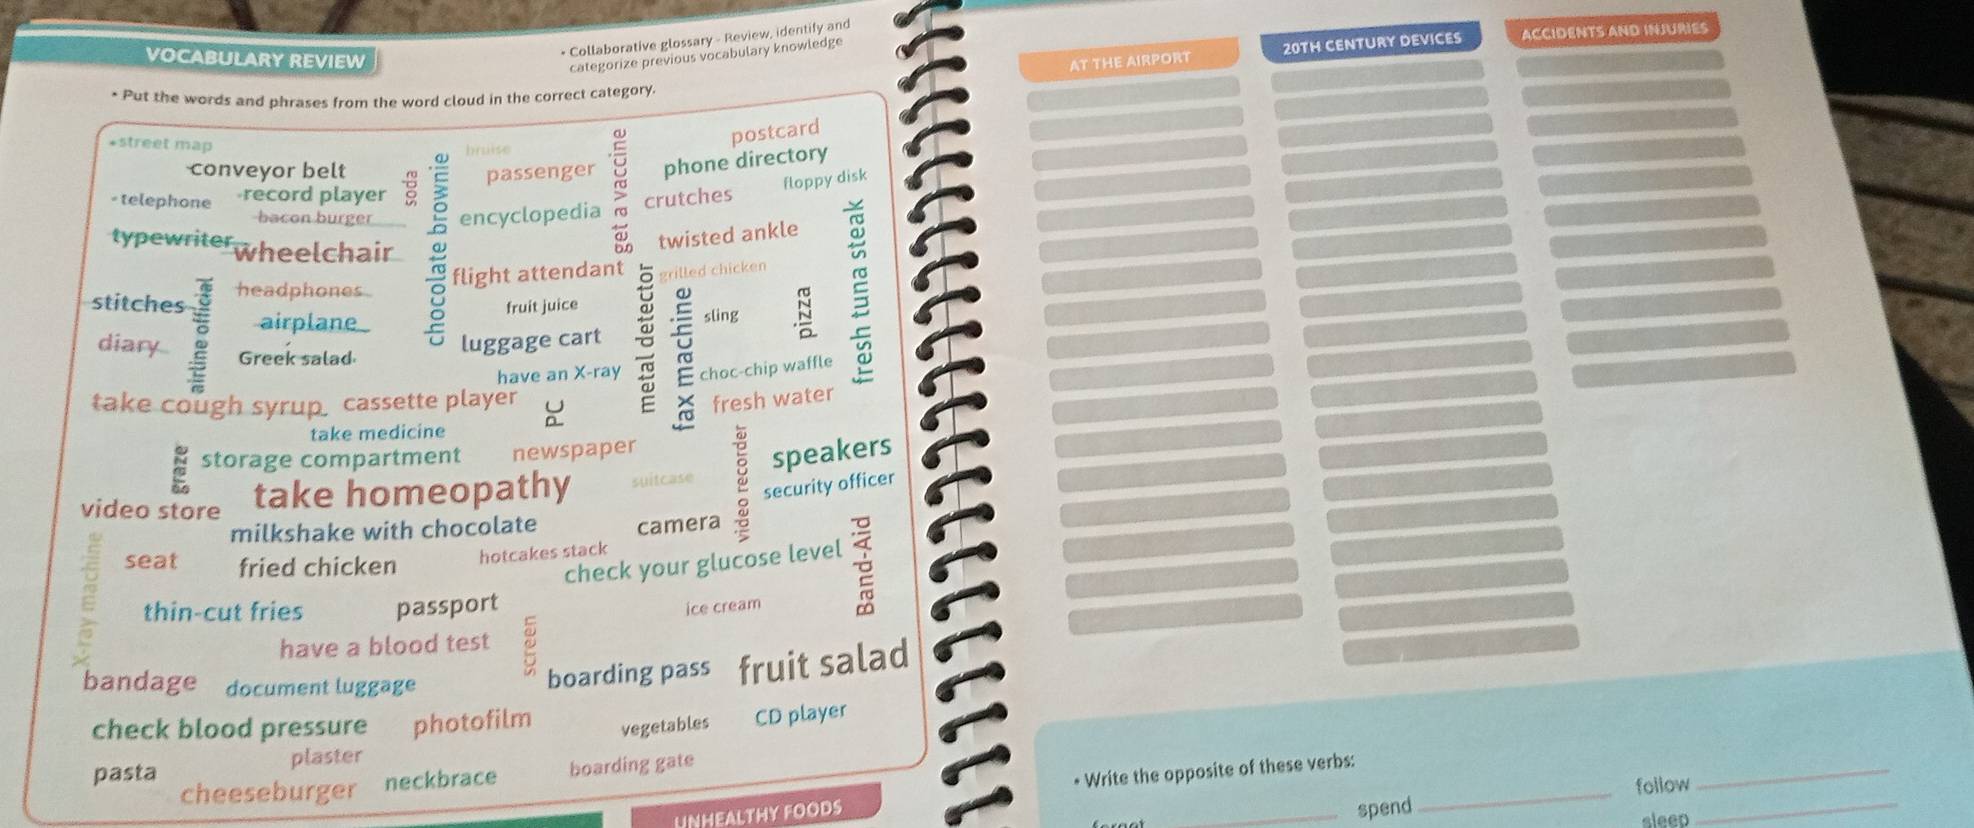 VOCABULARY REVIEW
• Collaborative glossary - Review, identify and
categorize previous vocabulary knowledge
• Put the words and phrases from the word cloud in the correct category.
street map
bruise
get a vaccine
postcard
conveyor belt
soda
chocolate brownie
passenger
phone directory
telephone
record player
crutches
floppy disk
bacon burger
encyclopedia
typewriter
wheelchair
twisted ankle
fresh tuna steak
flight attendant
grilled chicken
headphones
stitches
airline official
fruit juice
metal detector
fax machine
sling
pizza
airplane
diary
luggage cart
Greek salad
have an X-ray
choc-chip waffle
take cough syrup
cassette player
PC
fresh water
take medicine
graze
storage compartment
newspaper
video recorder
speakers
take homeopathy
suitcase
security officer
video store
milkshake with chocolate
camera
X-ray machine
seat
fried chicken
hotcakes stack
check your glucose level
Band-Aid
thin-cut fries
passport
ice cream
have a blood test
screen
bandage
document luggage
boarding pass
fruit salad
check blood pressure
photofilm
vegetables
CD player
plaster
pasta
boarding gate
cheeseburger
neckbrace
UNHEALTHY FOODS
AT THE AIRPORT
20TH CENTURY DEVICES
ACCIDENTS AND INJURIES
• Write the opposite of these verbs:
follow
spend
sleep